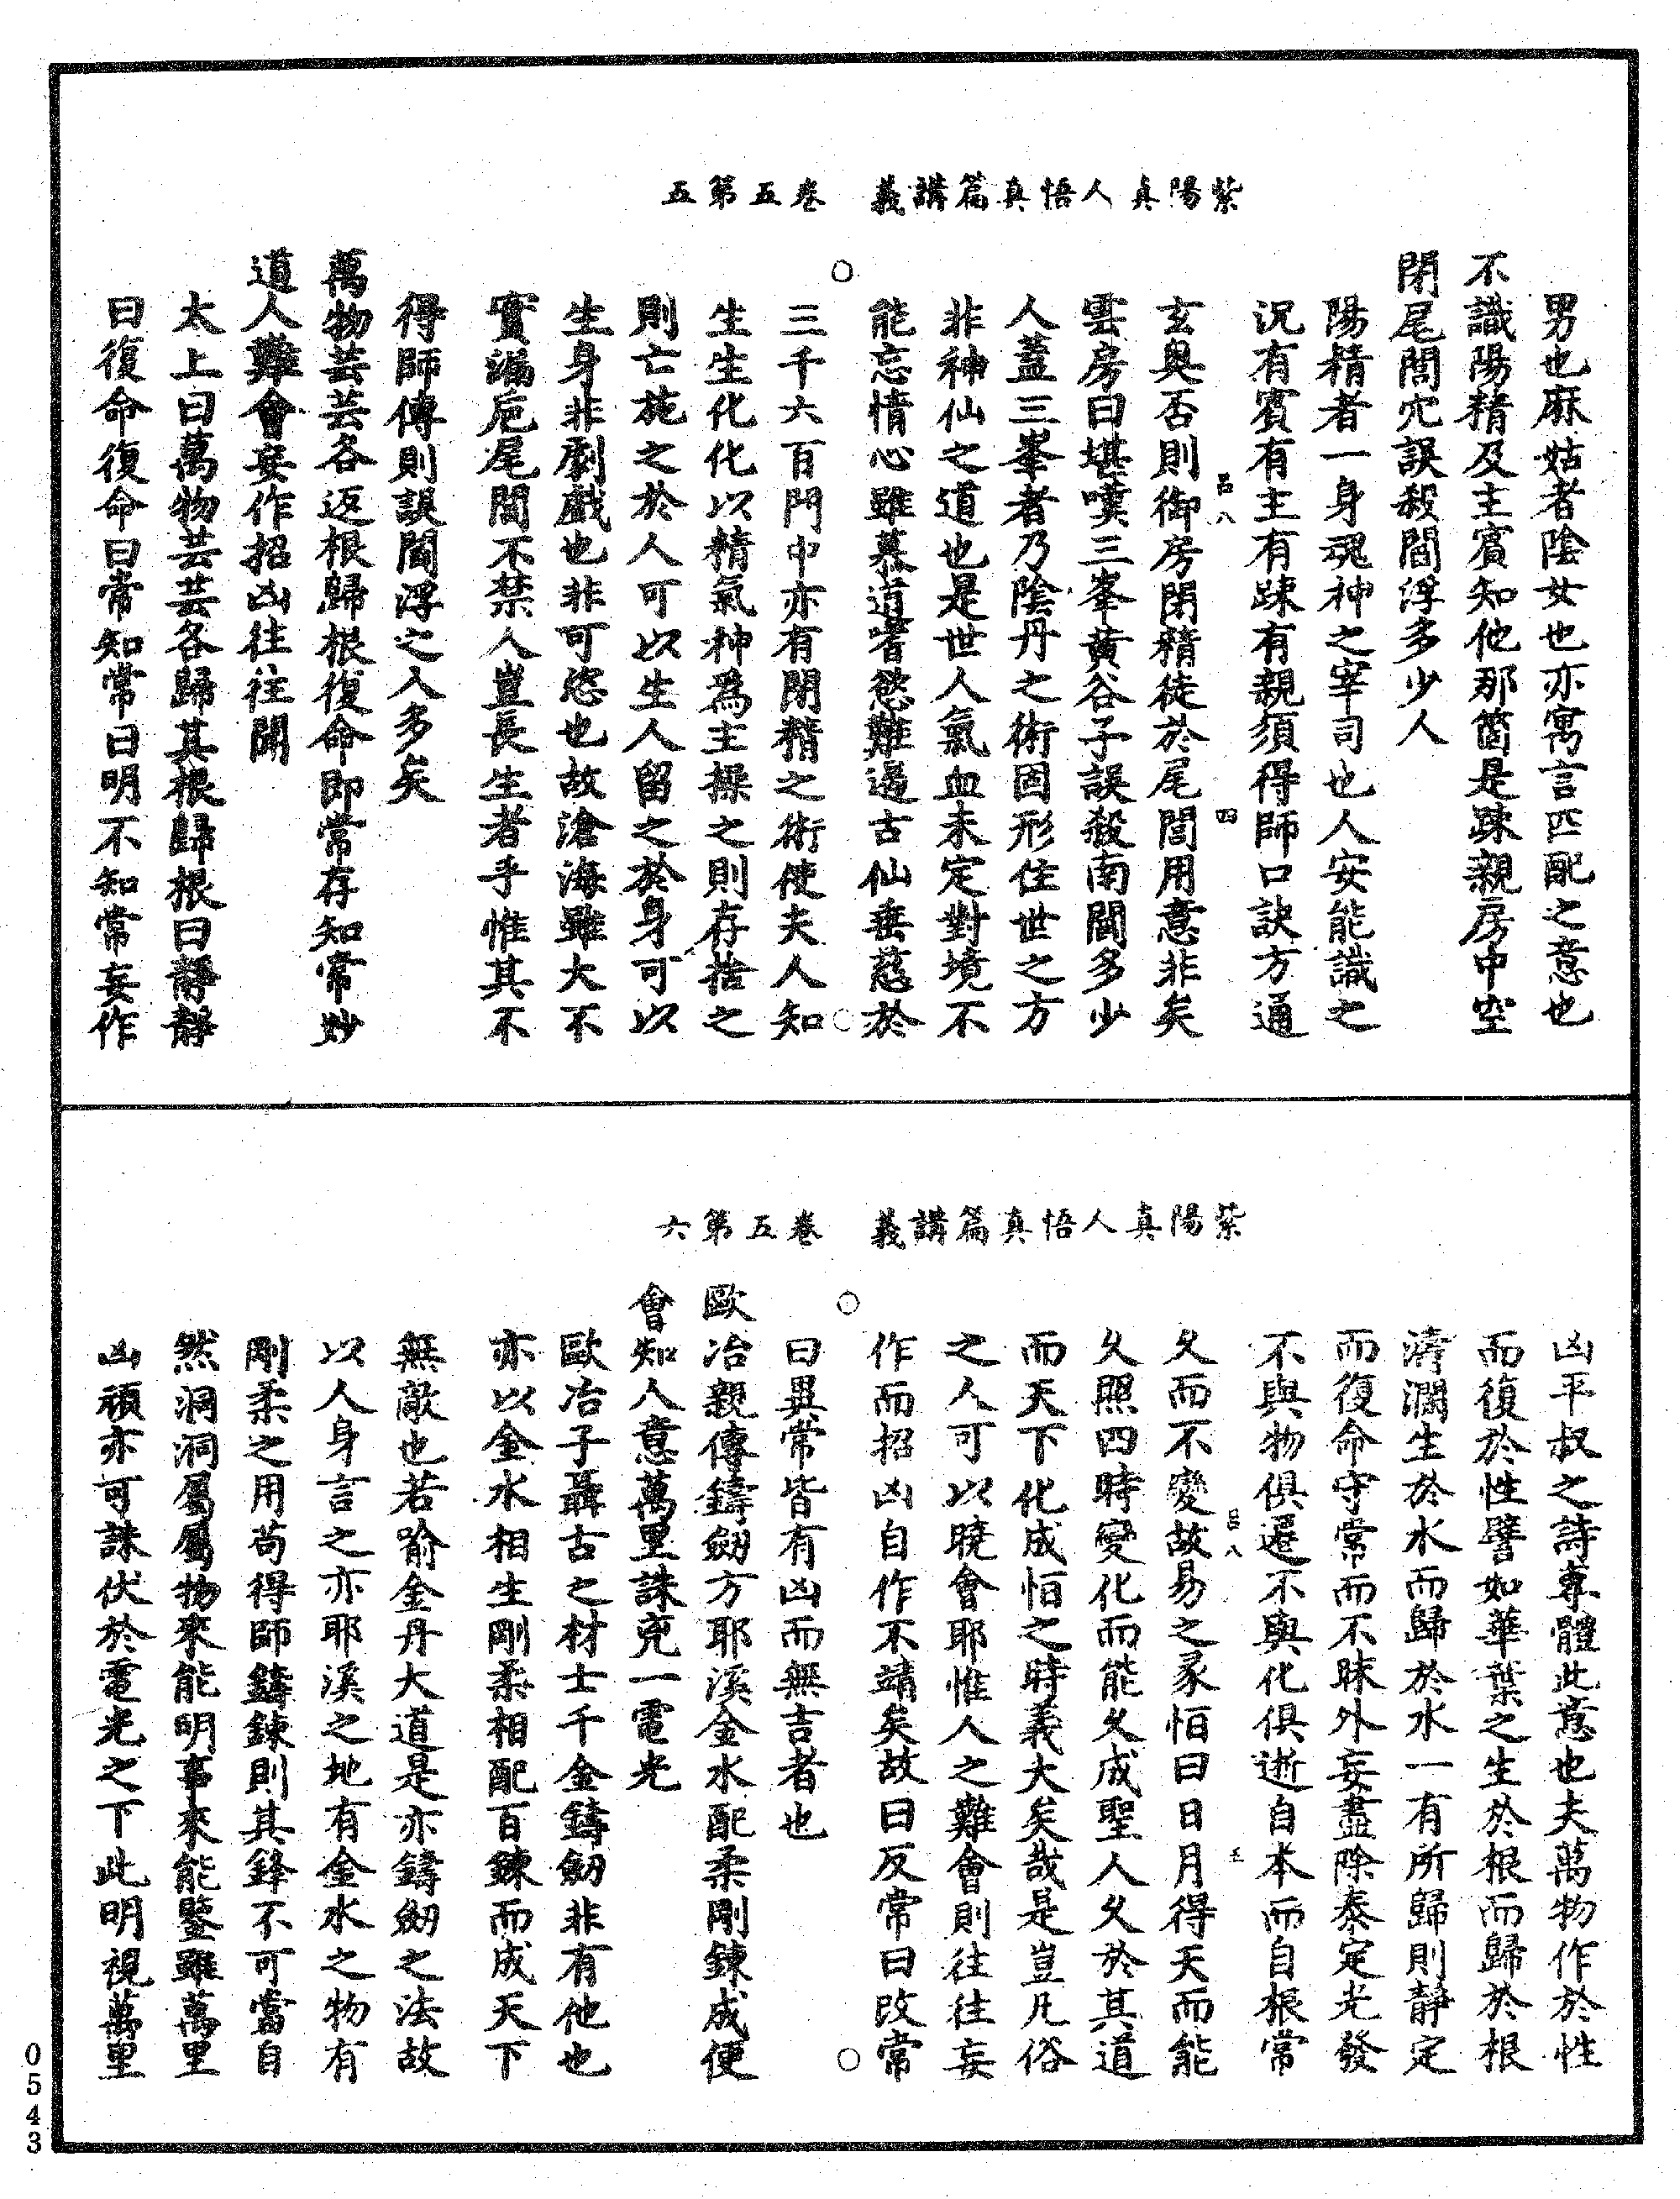 紫陽真人悟真篇講義　卷五第五
男也麻姑者陰女也亦寓言匹配之意也
不識陽精及主賓知他那箇是踈親房中空
閉尾閭穴誤殺閻浮多少人
陽精者一身魂神之宰司也人安能識之
況有賓有主有踈有親須得師口訣方通
呂八　四
玄奥否則御房閉精徒於尾閭用意非矣
雲房曰堪嘆三峯黃谷子誤殺南閻多少
人蓋三峯者乃陰丹之術固形住世之方
非神仙之道也是世人氣血未定對境不
能忘情心雖慕道嗜慾難遏古仙垂慈於
三千六百門中亦有閉精之術使夫人知
生生化化以精氣神爲主操之則存捨之
則亡施之於人可以生人留之於身可以
生身非劇戲也非可恣也故滄海雖大不
實漏巵尾閭不禁人豈長生者乎惟其不
得師傳則誤閻浮之人多矣
萬物芸芸各返根歸根復命即常存知常妙
道人難會妄作招凶往往聞
太上曰萬物芸芸各歸其根歸根曰靜靜
曰復命復命曰常知常曰明不知常妄作
紫陽真人悟真篇講義　卷五第六
凶平叔之詩專體此意也夫萬物作於性
而復於性譬如華葉之生於根而歸於根
濤瀾生於水而歸於水一有所歸則靜定
而復命守常而不昧外妄盡除泰定光發
不與物俱遷不與化俱逝自本而自根常
呂八　五
久而不變故易之彖恒曰日月得天而能
久照四時變化而能久成聖人久於其道
而天下化成恒之時義大矣哉是豈凡俗
之人可以曉會耶惟人之難會則往往妄
作而招凶自作不靖矣故曰反常曰改常
曰異常皆有凶而無吉者也
歐冶親傳鑄劒方耶溪金水配柔剛鍊成便
會知人意萬里誅兇一電光
歐冶子聶古之材士千金鑄劒非有他也
亦以金水相生剛柔相配百鍊而成天下
無敵也若喻金丹大道是亦鑄劒之法故
以人身言之亦耶溪之地有金水之物有
剛柔之用苟得師鑄鍊則其鋒不可當自
然洞洞屬屬物來能明事來能鑒雖萬里
凶頑亦可誅伏於電光之下此明視萬里
0543